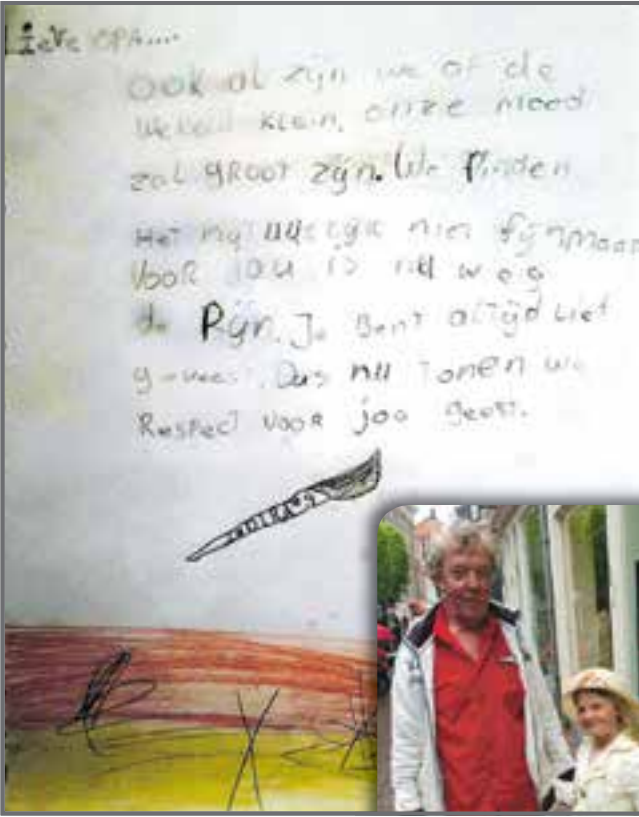 Lieve OPA....
OOK al zijn we of de
Wereld klein, onze moed
zal GROOT zijn. We finden
Het natuurlijk niet fijn maar
VOOR jou is nu weg
de Pijn. Je Bent altijd Lief
geweest. Dus nu Tonen we
Respect VOOR joo geest.